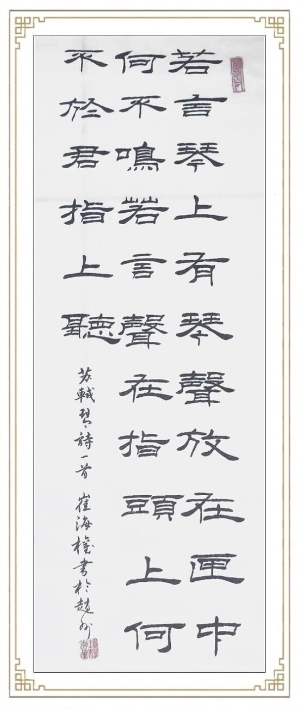 若言琴上有琴聲放在匣中
何不鳴若言聲在指頭上何
不於君指上聽
苏軾琴詩一首 崔海 書於趙州